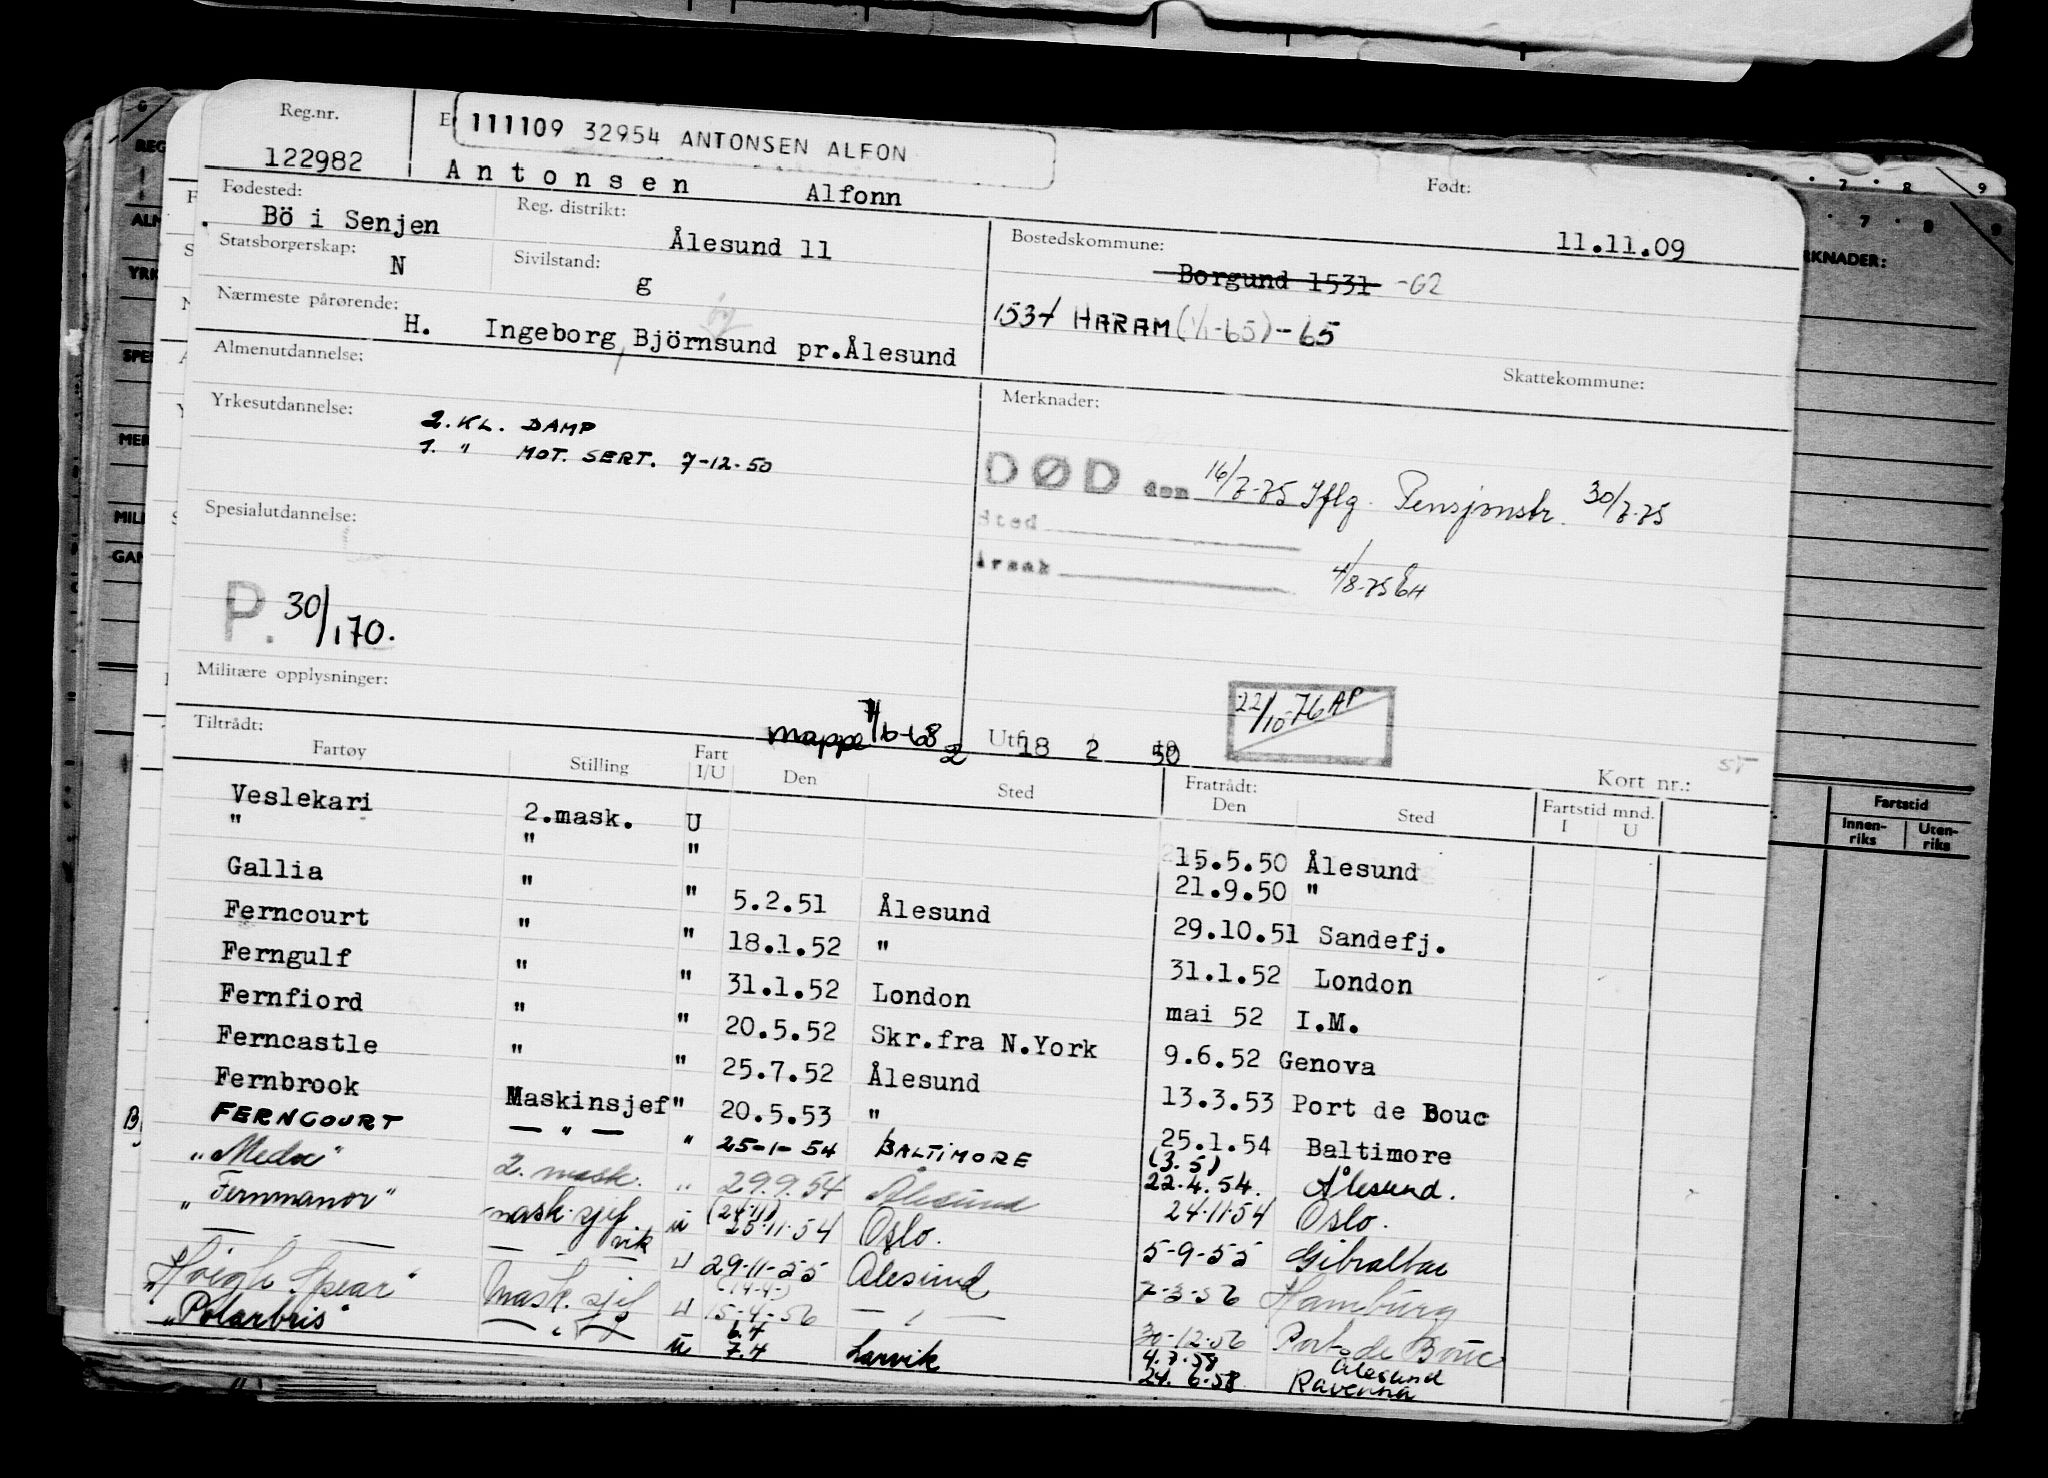 Reg.nr.
122982
111109 32954 ANTONSEN ALFON
Antonsen Alfonn
Født:
11.11.09
Fødested:
Bö i Senjen
Reg. distrikt:
Ålesund 11
Bostedskommune:
Borgund 1531 -62
1534 HARAM (1/1-65) -65
Statsborgerskap:
N
Sivilstand:
g
Nærmeste pårørende:
H. Ingeborg, Björnsund pr.Ålesund
Skattekommune:
Almenutdannelse:
Merknader:
Yrkesutdannelse:
2. KL. DAMP
1. " MOT. SERT. 7-12-50
DØD den 16/7-75 Iflg. Pensjonstr. 30/7-75
Sted
Årsak
4/8-75 EH
Spesialutdannelse:
P. 30/1 70.
Militære opplysninger:
22/10-76 AP
mappe 7/6-68
Utf. 18 2 50
Kort nr.:
Tiltrådt:
Fartøy Stilling Fart I/U Den Sted Fratrådt: Den Sted Fartstid mnd. I U
Veslekari 2.mask. U 15.5.50 Ålesund
" " " 21.9.50 "
Gallia " " 5.2.51 Ålesund 29.10.51 Sandefj.
Ferncourt " " 18.1.52 " 31.1.52 London
Ferngulf " " 31.1.52 London mai 52 I.M.
Fernfiord " " 20.5.52 Skr.fra N.York 9.6.52 Genova
Ferncastle " " 25.7.52 Ålesund 13.3.53 Port de Bouc
Fernbrook Maskinsjef " 20.5.53 " 25.1.54 Baltimore
FERNCOURT — " — " 25-1-54 BALTIMORE (3.5) 22.4.54. Ålesund.
"Meda" 2. mask. " 29.9.54 Ålesund 24.11.54 Oslo.
"Fernmanor" mask.sjef u (24.11) 25.11.54 Oslo. 5-9-55 Gibraltar
— — — — - — vik u 29-11-55 Ålesund 7-3-56 Hamburg
"Höegh Spear" Mask. sjef u (14-4-) 15-4-56 — " — 30-12-56 Port de Bouc
"Polarbris" — " — u 6.4 7.4 Larvik 4.7.58 Ålesund
24.6.58 Ravenna
MERKNADER:
Fartstid
Innenriks
Utenriks